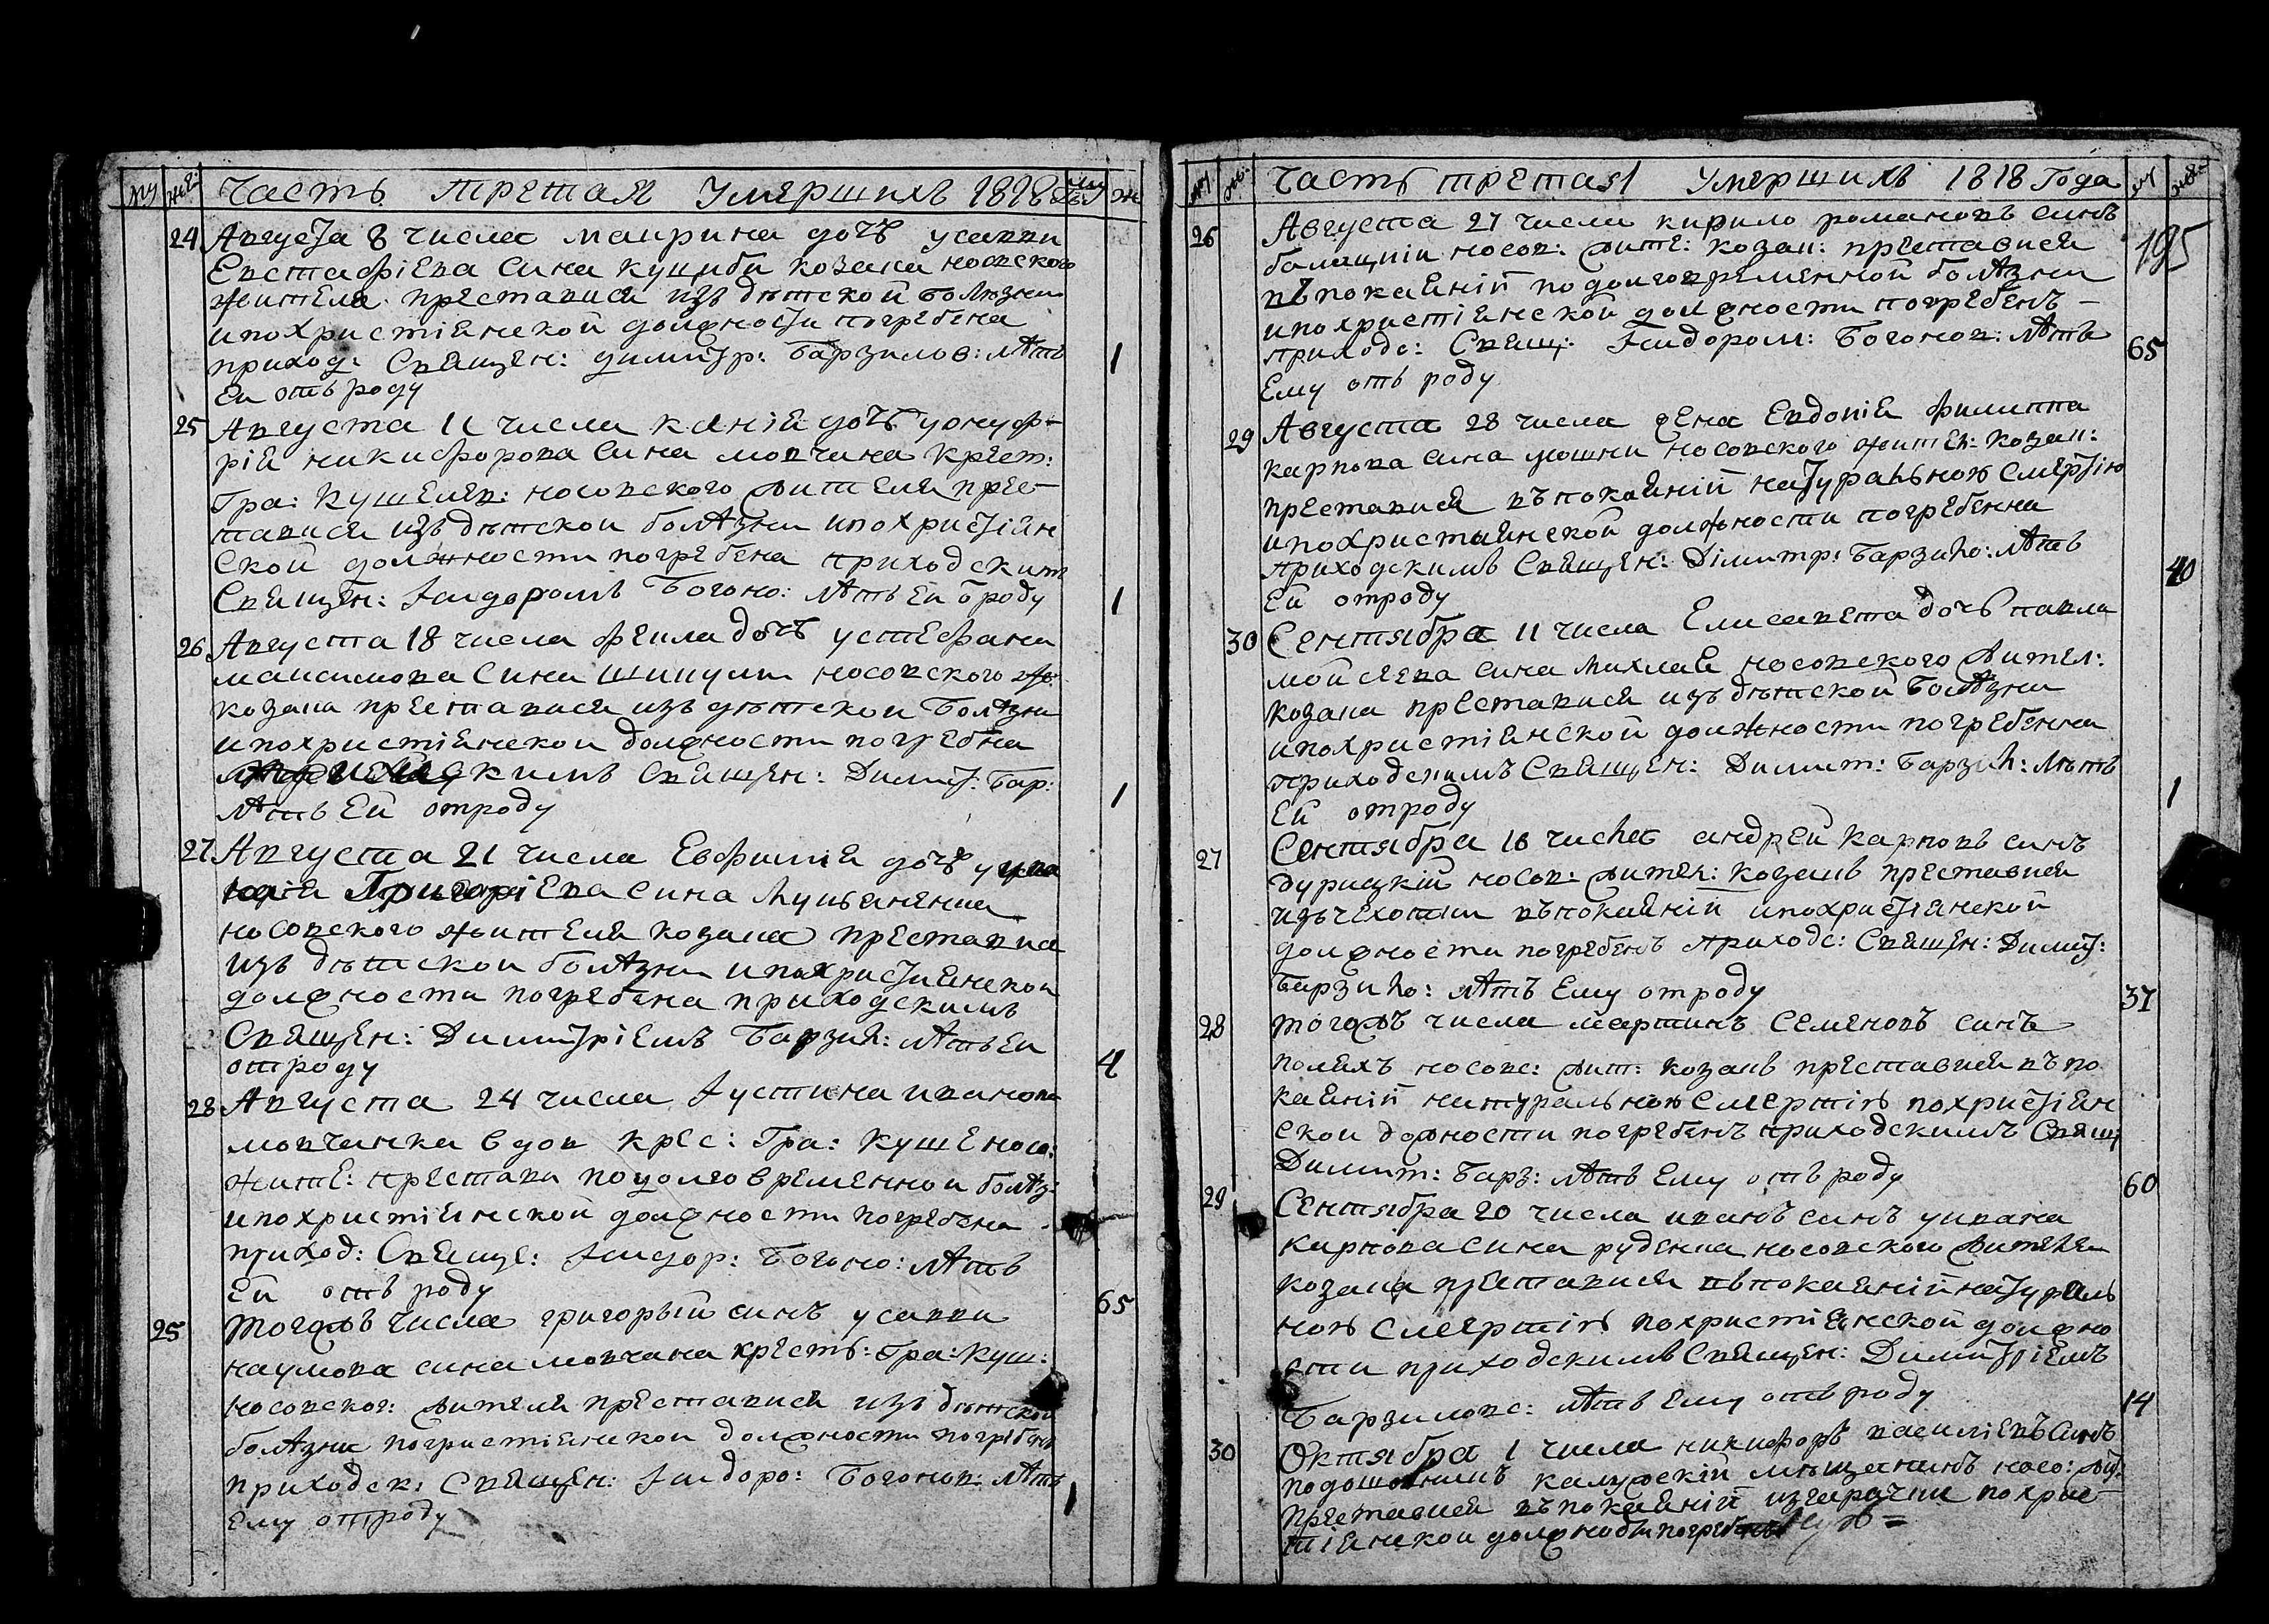 му же: Часть третая Умершихъ 1818 му ж
24 Августа 8 числа маирина дочъ усавви
Евстафіева сина куцыби козака носовского
жителя преставися изъ дѣтской болѣзни
ипохристіянской должности погребена
приход: Священ: димитр: Барзилов: лѣтъ 1
Еи отъ роду
25 Августа 11 числа ксенія дочъ уонуф-
рія никифорова сина мовчана крест:
Гра: Кушелев: носовского жителя прес-
тавися изъ дѣтскои болѣзни ипохристіян
ской должности погребена приходским
Священ: Ісидоромъ Богоно: лѣтъ Еи ѿроду 1
26 Августа 18 числа феила дочъ устефана
максимова сина шинули носовского жи:
козака преставися изъ дѣтскои болѣзни
ипохристіянскои должности погребена
приходскимъ священ: Димит: Бар: 1
лѣтъ Ей отроду
27 Августа 21 числа Евфимія дочъ у
Григоріева сина лукьяненка
носовского жителя козака преставися
изъ дѣтскои болѣзни ипохристиянскои
должности погребена приходскимъ
Священ: Димитріемъ Барзил: лѣтъ Еи
отроду 4
28 Августа 24 числа Іустина иванова
мовчанка вдов крес: Гра: Куше носо:
жите: престави подолговременнои болѣз:
ипохристіянской должности погребена
приход: Свяще: Ісидор: Богоно: лѣтъ
Ей отъ роду 65
25 тогожъ числа григорый синъ усавви
наумова сина мовчана крестъ: Гра: Куш:
носовског: жителя преставися изъ дѣтскои
болѣзни похристіянскои должности погребенъ
приходск: Священ: Ісидоро: Богонов: лѣтъ 1
Ему отроду
му же: Часть третая Умершихъ 1818 Года му жен
195
26 Августа 27 числа кирило романовъ синъ
носов: жите: козак: преставися
въпокаяній подолговременной болѣзни
ипохристіянской должности погребенъ -
приходс: Свящ: Ісидором: Богонов: лѣтъ 65
Ему отъ роду
29 Августа 28 числа жена Евдокія филиппа
карпова сина мошни носовского жител: козак:
преставися въпокаяній натуральною смертію
ипохристиянской должности погребенна
приходскимъ Священ: Дімитр: Барзило: лѣтъ 40
Ей отроду
30 Сентября 11 числа Елисавета дочъ павла
мойсеева сина михлая носовского жител:
козака преставися изъ дѣтской болѣзни
ипохристіянской должности погребенна
приходскимъ Священ: Димит: Барзил: лѣтъ 1
Ей отроду
27 Сентября 18 числа андрей карповъ синъ
дурицкій носов: жител: козакъ преставися
изъчехотки въпокаяній ипохристіянской
должности погребенъ приходс: Священ: Димит:
Барзило: лѣтъ Ему отроду 37
28 тогожъ числа мартинъ Семеновъ синъ
поляхъ носовс: жит: козакъ преставися въпо
каяній натуральною смертію похристіян
скои должности погребенъ приходскимъ Свящ
Димит: Барз: лѣтъ Ему отъ роду 60
29 Сентября 20 числа иванъ синъ уивана
карпова сина руденка носовского жителя
козака преставися въпокаяній натураль
ною смертію похристіянской должно
сти приходскимъ Священ: Димитріемъ
Барзиловс: лѣтъ Ему отъ роду 14
30 Октября 1 числа никифоръ василіевъ синъ
подошовникъ калужскій мѣщанинъ носо: жит:
преставися въпокаяній изгарячки похрис-
тіянскои должности погребенъ